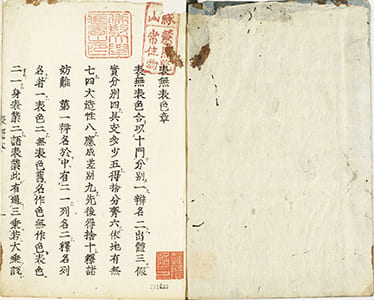 山常住物
表無表色章
表無表色合以十門分別一辨名二出體三假
實分別四具支多少五得捨分齊六依地有無
七四大造性八應成差別九先後得捨十釋諸
妨難 第一辨名於中有二一列名二釋名列
名者一表色二無表色舊名作色無作色表色
二一身表業二語表業此有通三乘若大乘說